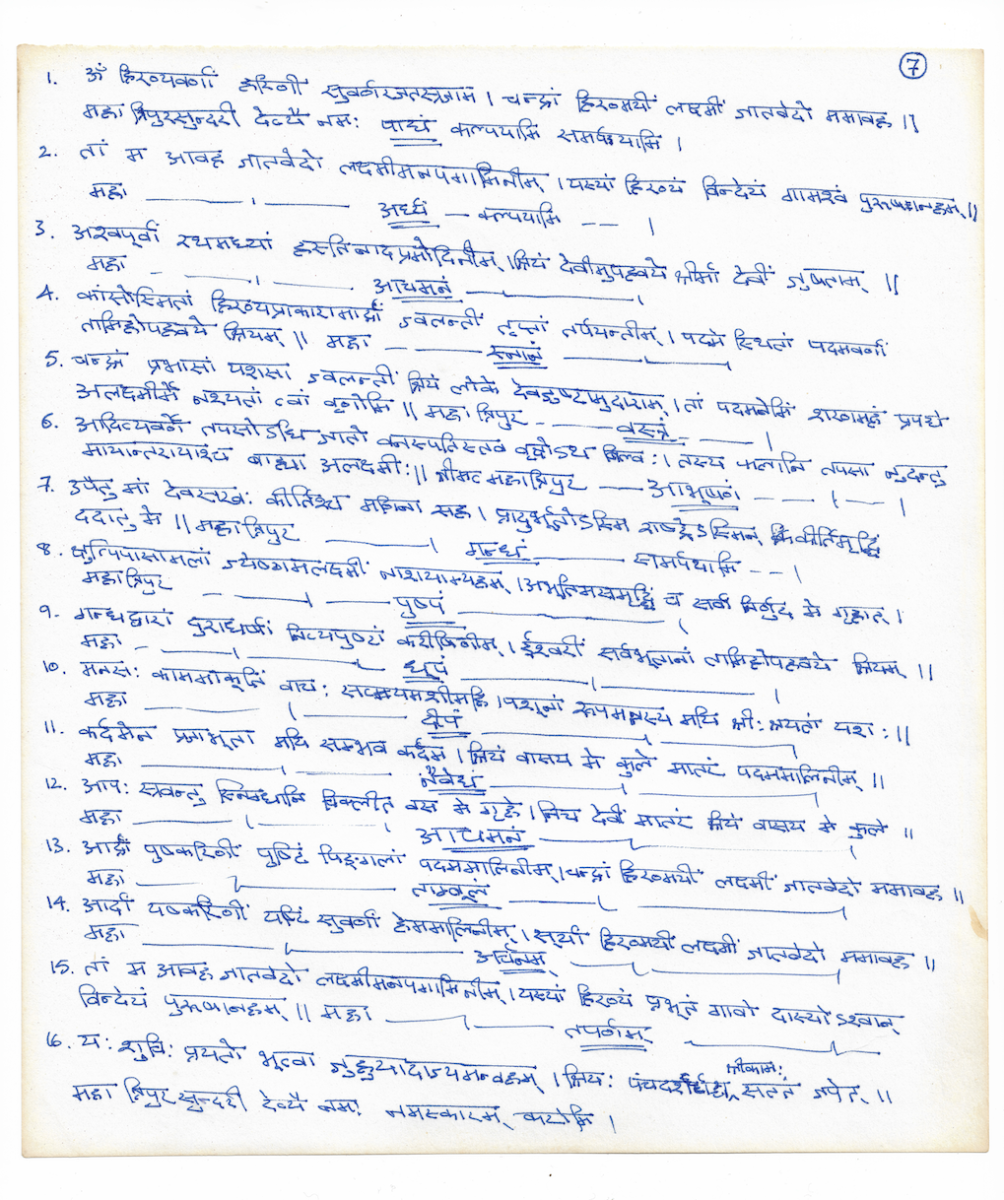 7
1. ॐ हिरण्यवर्णां हरिणीं सुवर्णरजतस्त्रजाम् । चन्द्रां हिरण्मयीं लक्ष्मीं जातवेदो ममावह ।।
महा त्रिपुरसुन्दरी देव्यै नमः पाद्यं कल्पयामि समर्पयामि ।
2. तां म आवह जातवेदो लक्ष्मीमनपगामिनीम् । यस्यां हिरण्यं विन्देयं गामश्वं पुरूषानहम् ।।
महा — । — अर्घ्यं — कल्पयामि — — ।
3. अश्वपूर्वां रथमध्यां हस्तिनादप्रमोदिनीम् । श्रियं देवीमुपह्वये श्रीर्मा देवीं जुषताम् ।।
महा — — । — आचमनं — ।
4. कांसोस्मितां हिरण्यप्राकारामार्द्रां ज्वलन्तीं तृप्तां तर्पयन्तीम् । पद्मे स्थितां पद्मवर्णां
तामिहोपह्वये श्रियम् ।। महा — — स्नानं —
5. चन्द्रां प्रभासां यशसा ज्वलन्तीं श्रियं लोके देवजुष्टामुदाराम् । तां पद्मनेमिं शरणमहं प्रपद्ये
अलक्ष्मीर्मे नश्यतां त्वां वृणोमि ।। महा त्रिपुर — — वस्त्रं — — ।
6. आदित्यवर्णे तपसोऽधि जातो वनस्पतिस्तव वृक्षोऽथ बिल्वः । तस्य फलानि तपसा नुदन्तु
मायान्तरायाश्च बाह्या अलक्ष्मीः ।। श्रीमत् महात्रिपुर — आभूषणं — — । — ।
7. उपैतु मां देवसखः कीर्तिश्च मणिना सह । प्रादुर्भूतोऽस्मि राष्ट्रेऽस्मिन् कीर्तिमृद्धिं
ददातु मे ।। महात्रिपुर — । गन्धं — समर्पयामि — — ।
8. क्षुत्पिपासामलां ज्येष्ठामलक्ष्मीं नाशयाम्यहम् । अभूतिमसमृद्धिं च सर्वां निर्णुद मे गृहात् ।
महात्रिपुर — — । — पुष्पं — ।
9. गन्धद्वारां दुराधर्षां नित्यपुष्टां करीषिणीम् । ईश्वरीं सर्वभूतानां तामिहोपह्वये श्रियम् ।।
महा — — । — धूपं — । — ।
10. मनसः काममाकूतिं वाचः सत्यमशीमहि । पशूनां रूपमन्नस्य मयि श्रीः श्रयतां यशः ।।
महा — । — दीपं —
11. कर्दमेन प्रजाभूता मयि सम्भव कर्दम । श्रियं वासय मे कुले मातरं पद्ममालिनीम् ।।
महा — । — नैवेद्यं —
12. आपः स्रवन्तु स्निग्धानि चिक्लीत वस मे गृहे । निच देवीं मातरं श्रियं वासय मे कुले ।।
महा — । — आचमनं —
13. आर्द्रां पुष्करिणीं पुष्टिं पिङ्गलां पद्ममालिनीम् । चन्द्रां हिरण्मयीं लक्ष्मीं जातवेदो ममावह ।।
महा — ताम्बूलं —
14. आर्दां यष्करिणीं यष्टिं सुवर्णां हेममालिनीम् । सूर्यां हिरण्मयीं लक्ष्मीं जातवेदो ममावह ।।
महा — अर्चनम् —
15. तां म आवह जातवेदो लक्ष्मीमनपगामिनीम् । यस्यां हिरण्यं प्रभूतं गावो दास्योऽश्वान्
विन्देयं पुरूषानहम् ।। महा — तर्पणम् —
16. यः शुचिः प्रयतो भूत्वा जुहुयादाज्यमन्वहम् । श्रियः पंचदशर्चं च श्रीकामः सततं जपेत् ।।
महा त्रिपुरसुन्दरी देव्यै नमः नमस्कारम् करोमि ।